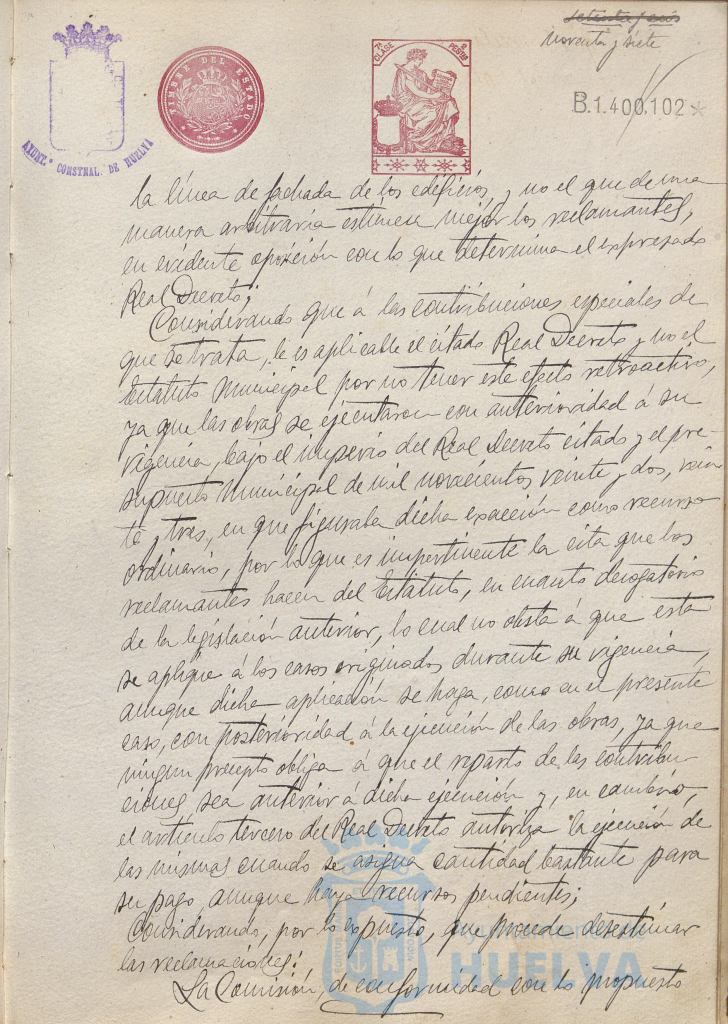 setenta y seis
noventa y siete
AYUNT.º CONSTNAL. DE HUELVA
TIMBRE DEL ESTADO
7ª CLASE
2 PESTAS
B.1.400.102*
la línea de fachada de los edificios, y no el que de una
manera arbitraria estimesa mejor los reclamantes,
en evidente oposición con lo que determina el expresado
Real Decreto;
Considerando que á las contribuciones especiales de
que se trata, le es aplicable el citado Real Decreto y no el
Estatuto Municipal por no tener este efecto retroactivo,
ya que las obras se ejecutaron con anterioridad á su
vigencia, bajo el imperio del Real Decreto citado y el pre-
supuesto Municipal de mil novecientos veinte y dos, vein
te y tres, en que figuraba dicha exacción como recurso
ordinario, por lo que es impertinente la cita que los
reclamantes hacen del Estatuto, en cuanto derogatorio
de la legislación anterior, lo cual no obsta á que esta
se aplique á los casos originados durante su vigencia,
aunque dicha aplicación se haga, como en el presente
caso, con posterioridad á la ejecución de las obras, ya que
ningun precepto obliga á que el reparto de las contribu-
ciones sea anterior á dicha ejecución y, en cambio,
el artículo tercero del Real Decreto autoriza la ejecución de
las mismas cuando se asigna cantidad bastante para
su pago, aunque haya recursos pendientes;
Considerando, por lo expuesto, que procede desestimar
las reclamaciones;
La Comisión, de conformidad con lo propuesto
HUELVA